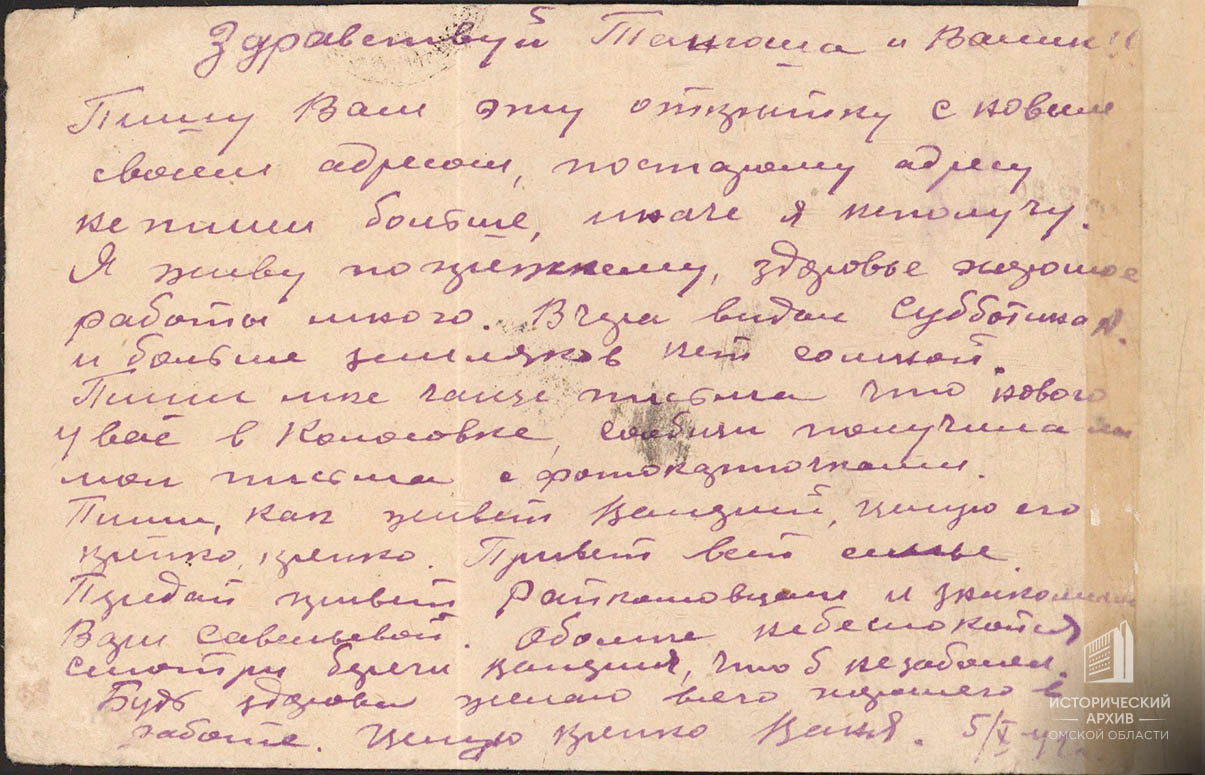 Здравствуй Танюша и Валик!!
Пишу Вам эту открытку с новым
своим адресом, постарому адресу
не пиши больше, иначе я неполучу.
Я живу попрежнему, здоровье хорошое
работы много. Вчера видал Субботина
и больше земляков нет сомной.
Пиши мне чаще письма что нового
у вас в Колосовке, сообщи получила ли
мои письма с фотокарточками.
Пиши, как живет Валерий, целую его
крепко, крепко. Привет всей семье.
Передай привет Райкомовцам и знакомым
Вере Савельевой. Обомне небеспокойся
смотри береги Валерия, чтоб незаболел.
Будь здорова желаю всего хорошего в
работе. Целую крепко Ваня. 5/V-
ИСТОРИЧЕСКИЙ
АРХИВ
ОМСКОЙ ОБЛАСТИ